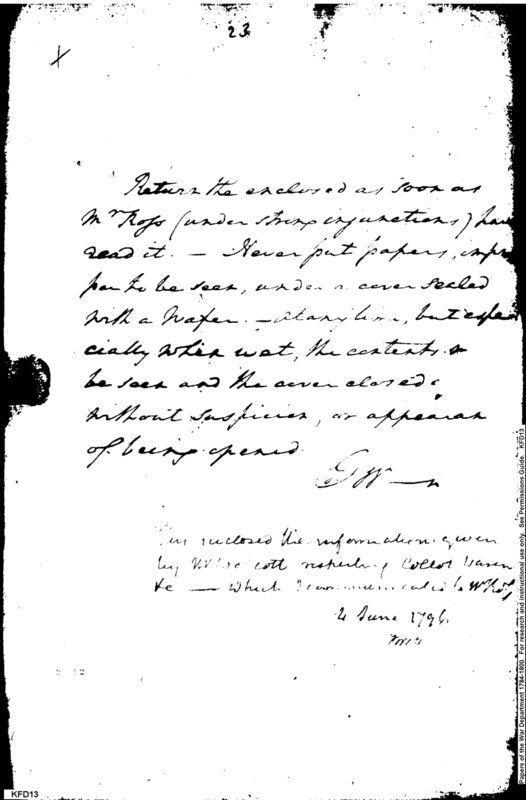 23
Return the enclosed as soon as
Mr Ross (under strong injunctions) have
read it. — Never put papers, impro
per to be seen, under a cover sealed
with a Wafer. — At any time, but espe
cially when wet, the contents
be seen and the cover closed
without suspicion, or appearan
of being opened
GW—n
enclosed the information given
by respecting Collot Varen
&c — which I communicated to
4 June 1796
KFD13
Papers of the War Department 1784-1800. For research and instructional use only. See Permissions Guide. KFD13